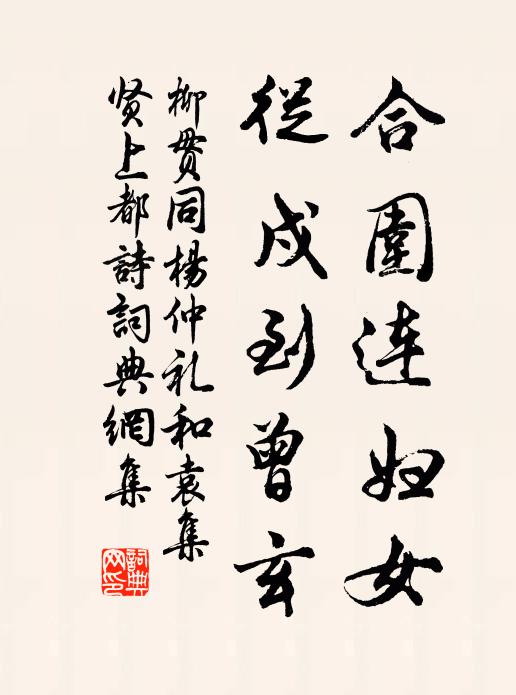 合圍連妇女
從戍到曾玄
柳贯同楊仲礼和袁集
贤上都詩詞典網集
詞典
网印